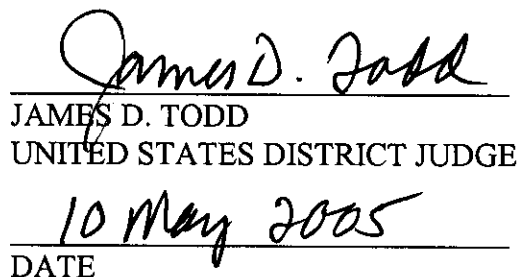 James D. Todd
JAMES D. TODD
UNITED STATES DISTRICT JUDGE
10 May 2005
DATE